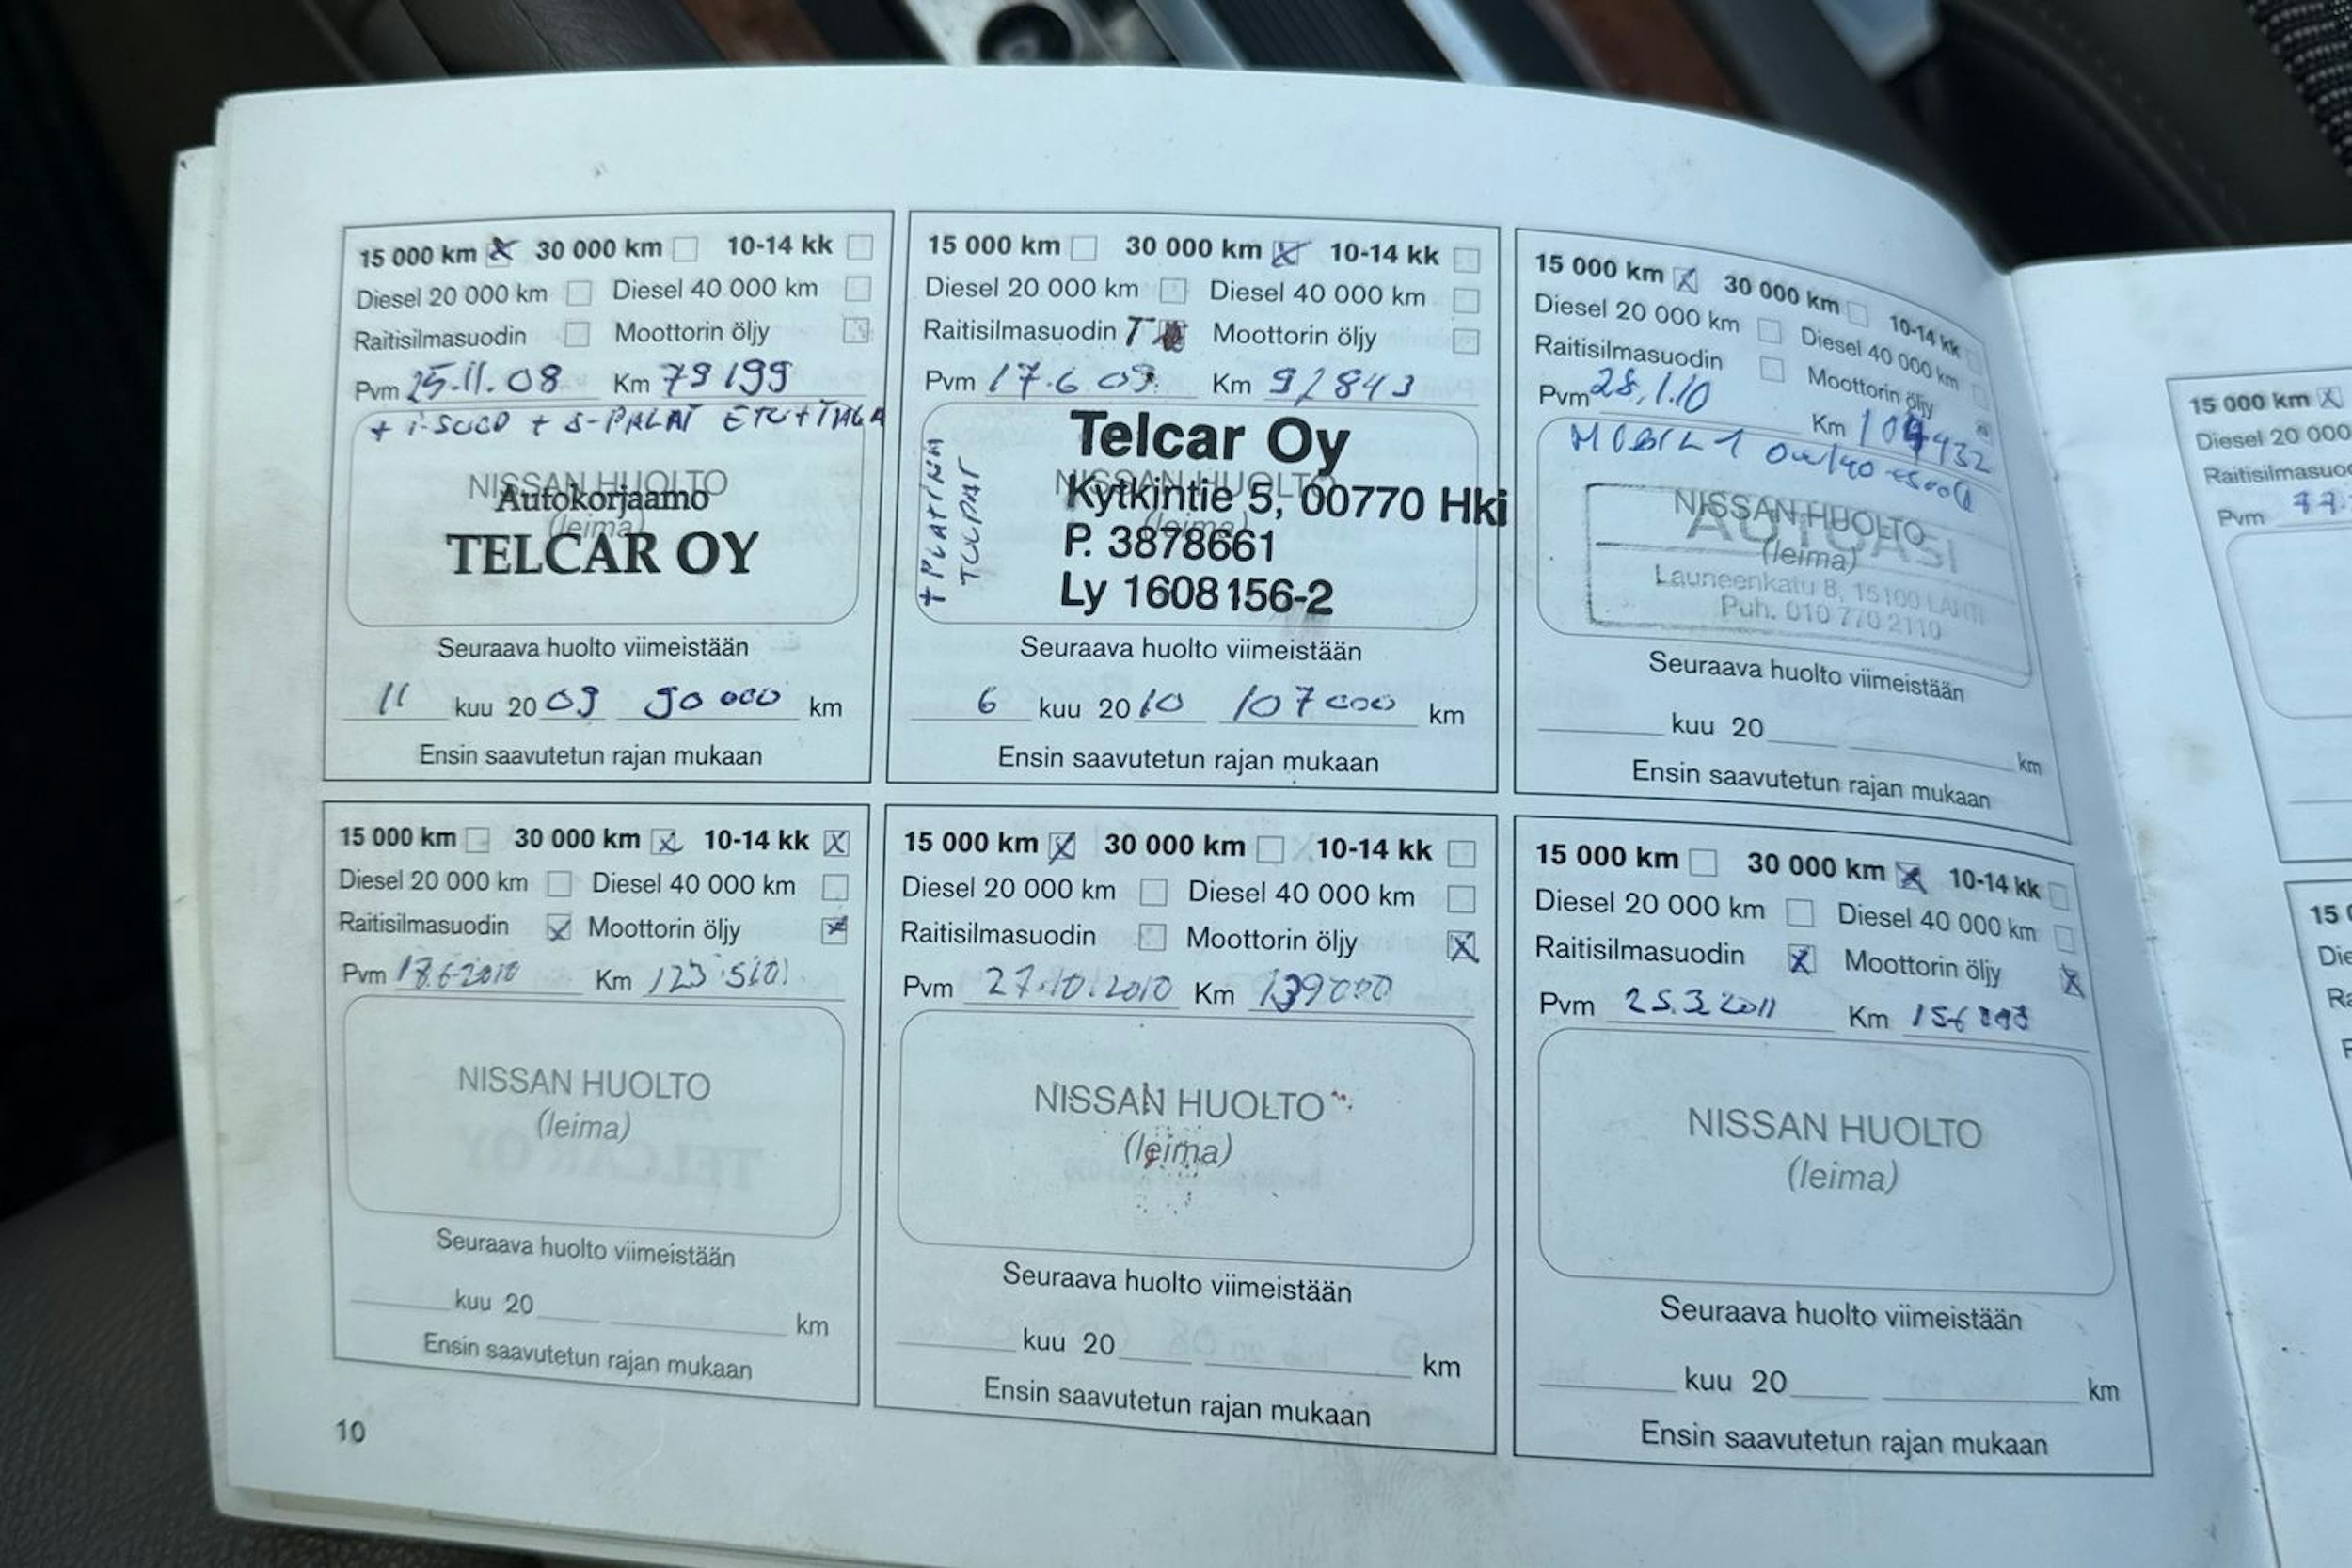 15 000 km 30 000 km 10-14 kk
Diesel 20 000 km Diesel 40 000 km
Raitisilmasuodin Moottorin öljy
Pvm 25.11.08 Km 79199
+ i-SUOD + S-PALAT ETU+TAKA
NISSAN HUOLTO
Autokorjaamo
(leima)
TELCAR OY
Seuraava huolto viimeistään
11 kuu 2009 90 000 km
Ensin saavutetun rajan mukaan
15 000 km 30 000 km 10-14 kk
Diesel 20 000 km Diesel 40 000 km
Raitisilmasuodin Moottorin öljy
Pvm 17.6.09 Km 92843
+ PLATINA
TULPAT
Telcar Oy
NISSAN HUOLTO
Kytkintie 5, 00770 Hki
(leima)
P. 3878661
Ly 1608156-2
Seuraava huolto viimeistään
6 kuu 2010 107 000 km
Ensin saavutetun rajan mukaan
15 000 km 30 000 km 10-14 kk
Diesel 20 000 km Diesel 40 000 km
Raitisilmasuodin Moottorin öljy
Pvm 28.1.10 Km
MOBIL 1
NISSAN HUOLTO
AUTOASI
(leima)
Launeenkatu 8, 15100 LAHTI
Puh. 010 770 2110
Seuraava huolto viimeistään
kuu 20 km
Ensin saavutetun rajan mukaan
15 000 km 30 000 km 10-14 kk
Diesel 20 000 km Diesel 40 000 km
Raitisilmasuodin Moottorin öljy
Pvm 17.6.2010 Km
NISSAN HUOLTO
(leima)
Seuraava huolto viimeistään
kuu 20 km
Ensin saavutetun rajan mukaan
15 000 km 30 000 km 10-14 kk
Diesel 20 000 km Diesel 40 000 km
Raitisilmasuodin Moottorin öljy
Pvm 27.10.2010 Km 139000
NISSAN HUOLTO
(leima)
Seuraava huolto viimeistään
kuu 20 km
Ensin saavutetun rajan mukaan
15 000 km 30 000 km 10-14 kk
Diesel 20 000 km Diesel 40 000 km
Raitisilmasuodin Moottorin öljy
Pvm 25.3.2011 Km
NISSAN HUOLTO
(leima)
Seuraava huolto viimeistään
kuu 20 km
Ensin saavutetun rajan mukaan
10
15 000 km
Diesel 20 000
Raitisilmasuo
Pvm
15
Die
Ra